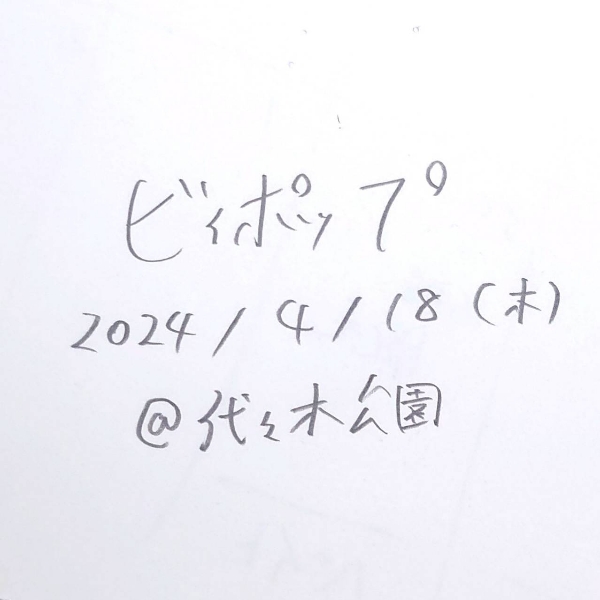 ビィポップ
2024/4/18(木)
@代々木公園